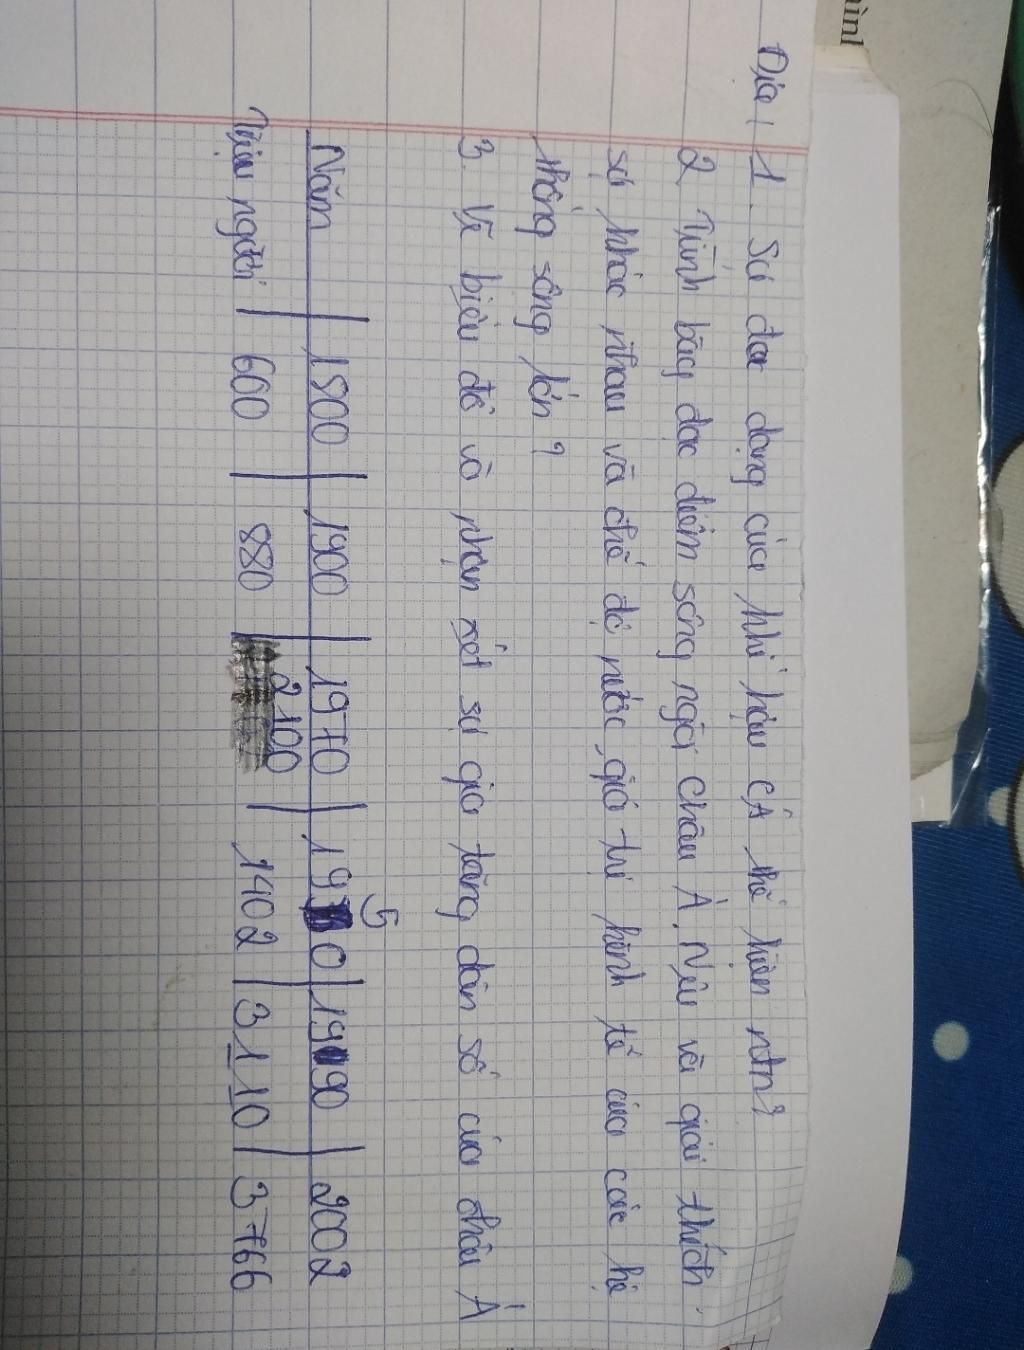 Địa / 1. Sự đa dạng của khí hậu CÁ thể hiện ntn?
2. Trình bày đặc điểm sông ngòi châu Á. Nêu và giải thích
sự khác nhau về chế độ nước, giá trị kinh tế của các hệ
thống sông lớn?
3. Vẽ biểu đồ và nhận xét sự gia tăng dân số của châu Á
Năm | 1800 | 1900 | 1970 | 1950 | 1990 | 2002
Triệu người | 600 | 880 | 2100 | 1402 | 3110 | 3766